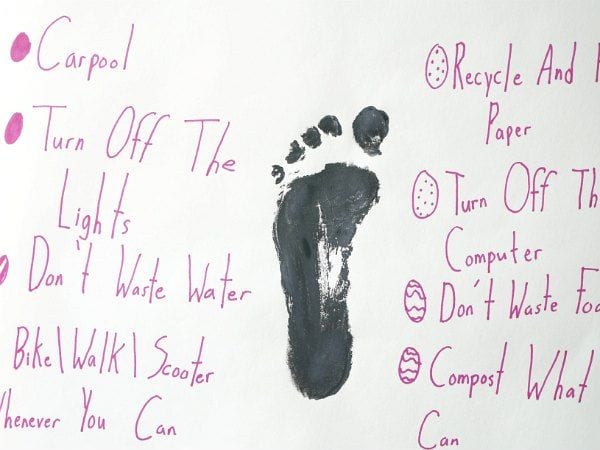 Carpool
Turn Off The
Lights
Don't Waste Water
Bike\Walk\Scooter
Whenever You Can
Recycle And
Paper
Turn Off
Computer
Don't Waste
Compost What
Can